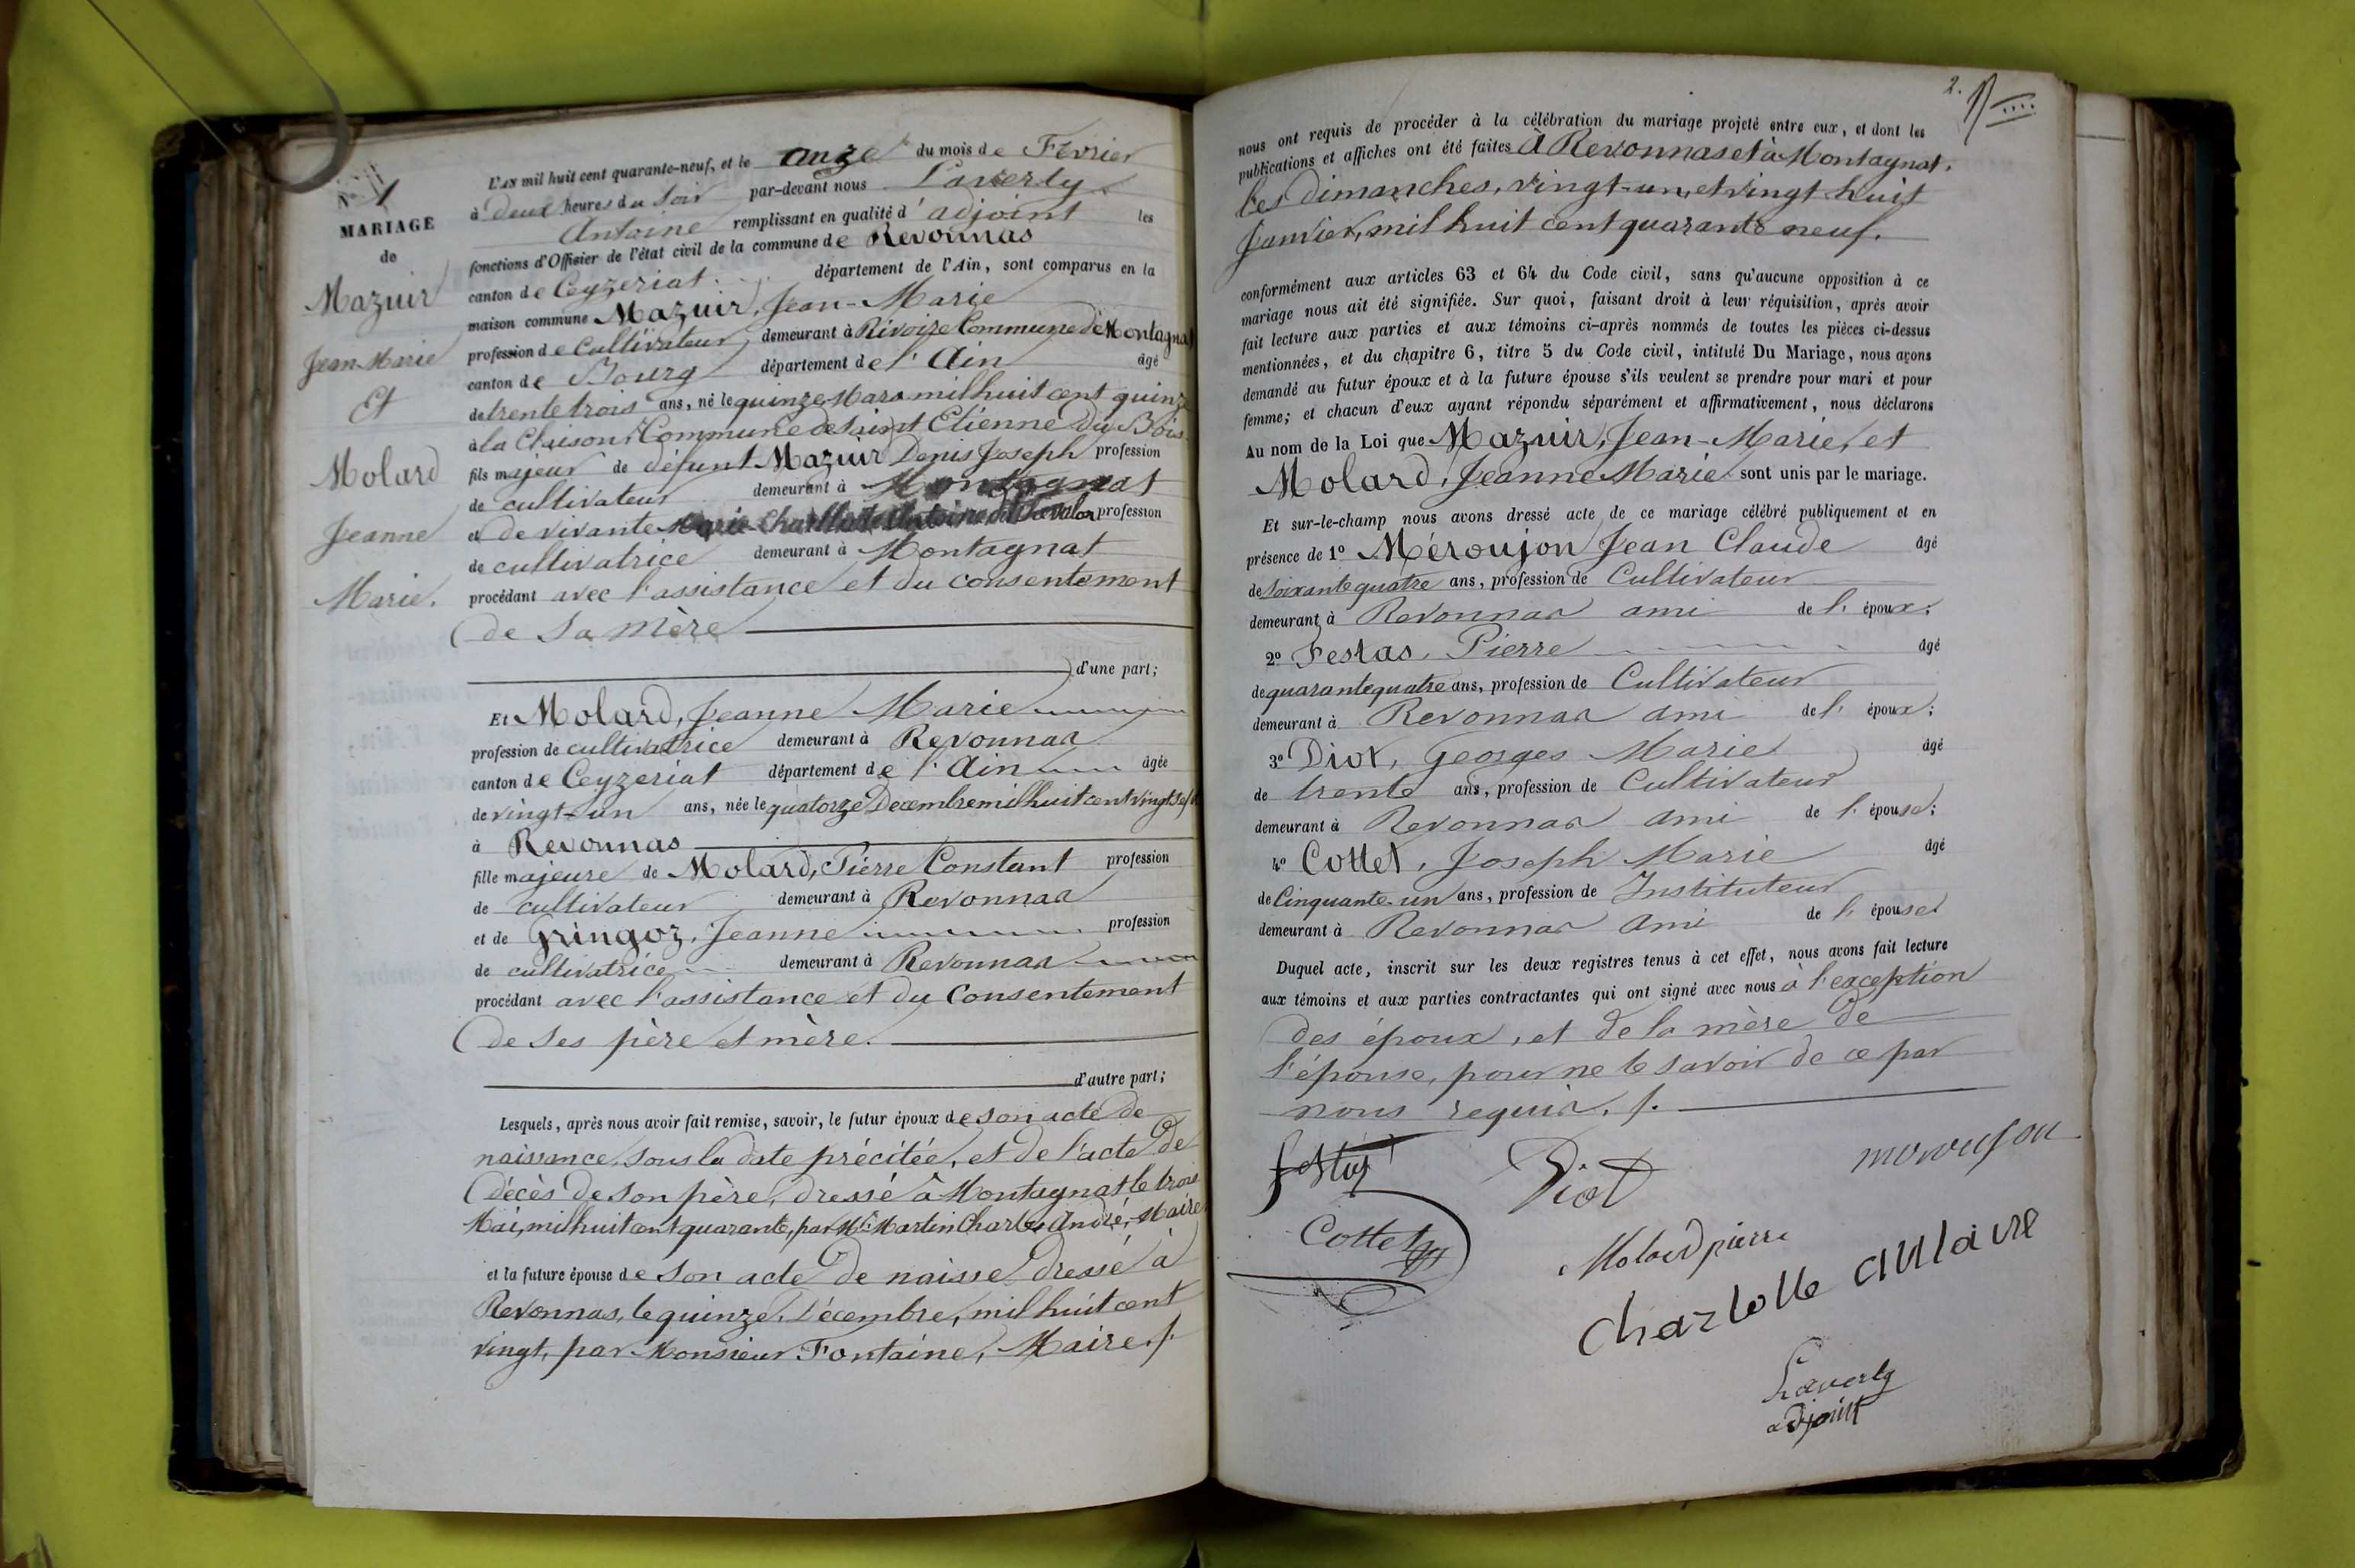 N° 1
MARIAGE
de
Mazuir
Jean-Marie
Et
Molard
Jeanne
Marie.
L'AN mil huit cent quarante-neuf, et le onze du mois de Février
à deux heures du soir par-devant nous Laverly
Antoine remplissant en qualité d'adjoint les
fonctions d'Officier de l'état civil de la commune de Revonnas
canton de Ceyzeriat département de l'Ain, sont comparus en la
maison commune Mazuir, Jean-Marie
profession de Cultivateur, demeurant à Rivoire Commune de Montagnat
canton de Bourg département de l'Ain âgé
de trente trois ans, né le quinze Mars mil huit cent quinze
à la Claison Commune de Saint Etienne Du Bois
fils majeur de défunt Mazuir Denis Joseph profession
de cultivateur demeurant à Montagnat
et de vivante Marie Charllotte Antoine dit profession
de cultivatrice demeurant à Montagnat
procédant avec l'assistance et du consentement
de sa mère
d'une part;
Et Molard, Jeanne Marie
profession de cultivatrice demeurant à Revonnas
canton de Ceyzeriat département de l'Ain âgée
de vingt-un ans, née le quatorze Decembre mil huit cent vingt sept
à Revonnas
fille majeure de Molard, Pierre Constant profession
de cultivateur demeurant à Revonnas
et de Gringoz, Jeanne profession
de cultivatrice demeurant à Revonnas
procédant avec l'assistance et du Consentement
de ses père et mère.
d'autre part;
Lesquels, après nous avoir fait remise, savoir, le futur époux de son acte de
naissance, sous la date précitée, et de l'acte de
décès de son père, dressé à Montagnat le trois
Mai, mil huit cent quarante, par Mr Martin Charles André, Maire
et la future épouse de son acte de naisse dressé à
Revonnas, le quinze, Décembre, mil huit cent
vingt, par Monsieur Fontaine, Maire./.
2.
nous ont requis de procéder à la célébration du mariage projeté entre eux, et dont les
publications et affiches ont été faites à Revonnas et à Montagnat,
les dimanches, vingt-un, et vingt huit
Janvier, mil huit cent quarante neuf.
conformément aux articles 63 et 64 du Code civil, sans qu'aucune opposition à ce
mariage nous ait été signifiée. Sur quoi, faisant droit à leur réquisition, après avoir
fait lecture aux parties et aux témoins ci-après nommés de toutes les pièces ci-dessus
mentionnées, et du chapitre 6, titre 5 du Code civil, intitulé Du Mariage, nous avons
demandé au futur époux et à la future épouse s'ils veulent se prendre pour mari et pour
femme; et chacun d'eux ayant répondu séparément et affirmativement, nous déclarons
Au nom de la Loi que Mazuir, Jean-Marie, et
Molard, Jeanne Marie sont unis par le mariage.
Et sur-le-champ nous avons dressé acte de ce mariage célébré publiquement et en
présence de 1° Méroujon Jean Claude âgé
de soixante quatre ans, profession de Cultivateur
demeurant à Revonnas ami de l' époux;
2° Festas, Pierre âgé
de quarante quatre ans, profession de Cultivateur
demeurant à Revonnas ami de l' époux;
3° Diot, Georges Marie âgé
de trente ans, profession de Cultivateur
demeurant à Revonnas ami de l' épouse;
4° Cottet, Joseph Marie âgé
de Cinquante-un ans, profession de Instituteur
demeurant à Revonnas ami de l' épouse.
Duquel acte, inscrit sur les deux registres tenus à cet effet, nous avons fait lecture
aux témoins et aux parties contractantes qui ont signé avec nous à l'exception
des époux, et de la mère de
l'épouse, pour ne le savoir de ce par
nous requis./.
Diot
Cottet
Molard pierre
Charlotte antoine
Laverly
adjoint